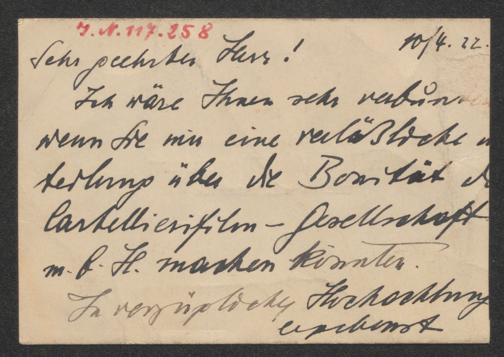 J.N. 117.258
10/4. 22.
Sehr geehrter Herr!
Ich wäre Ihnen sehr verbun
wenn Sie mir eine verläßliche
teilung über die Bonität d
Castellierifilm – Gesellschaft
m. b. H. machen könnten.
In vorzüglicher Hochachtung
ergebenst